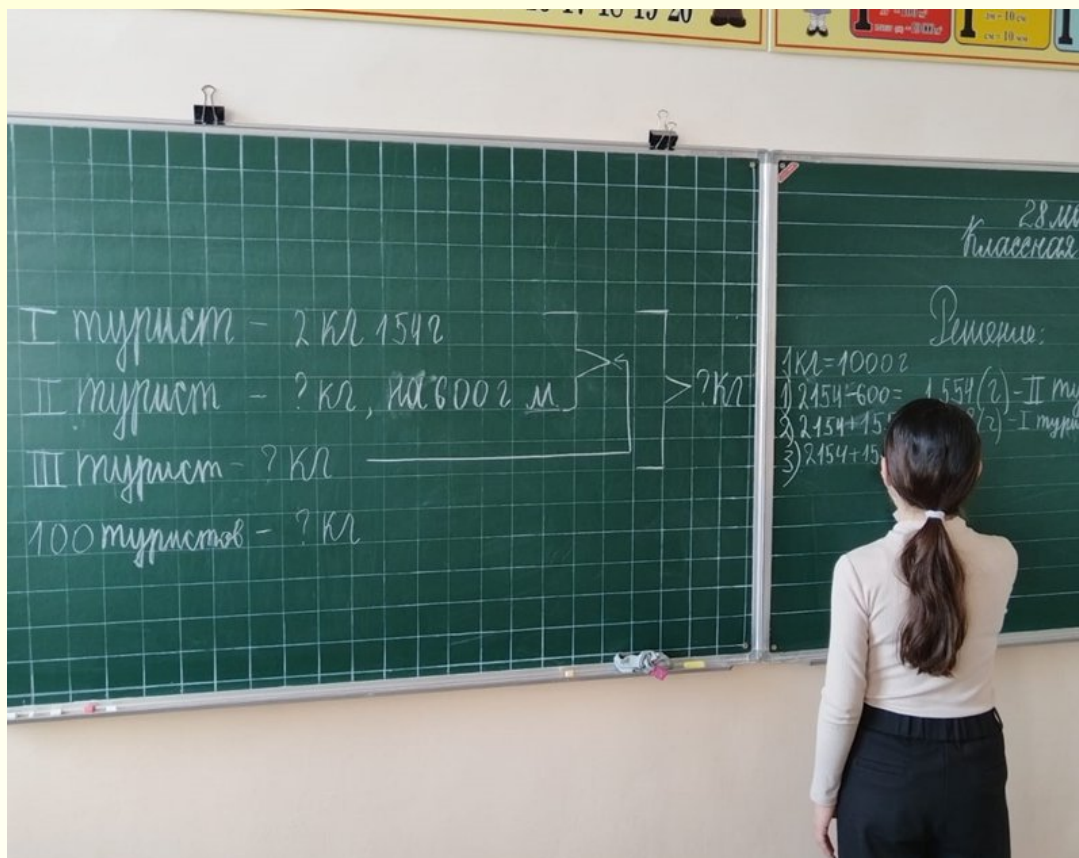 16 17 18 19 20
1 дм = 10 см
1 см = 10 мм
I турист - 2 кг 154 г
II турист - ? кг, на 600 г м
III турист - ? кг
? кг
100 туристов - ? кг
28
Классная
Решение:
1 кг = 1000 г
1) 2154-600= 1554(г) - II
2) 2154+15 (г) - I
3) 2154+15